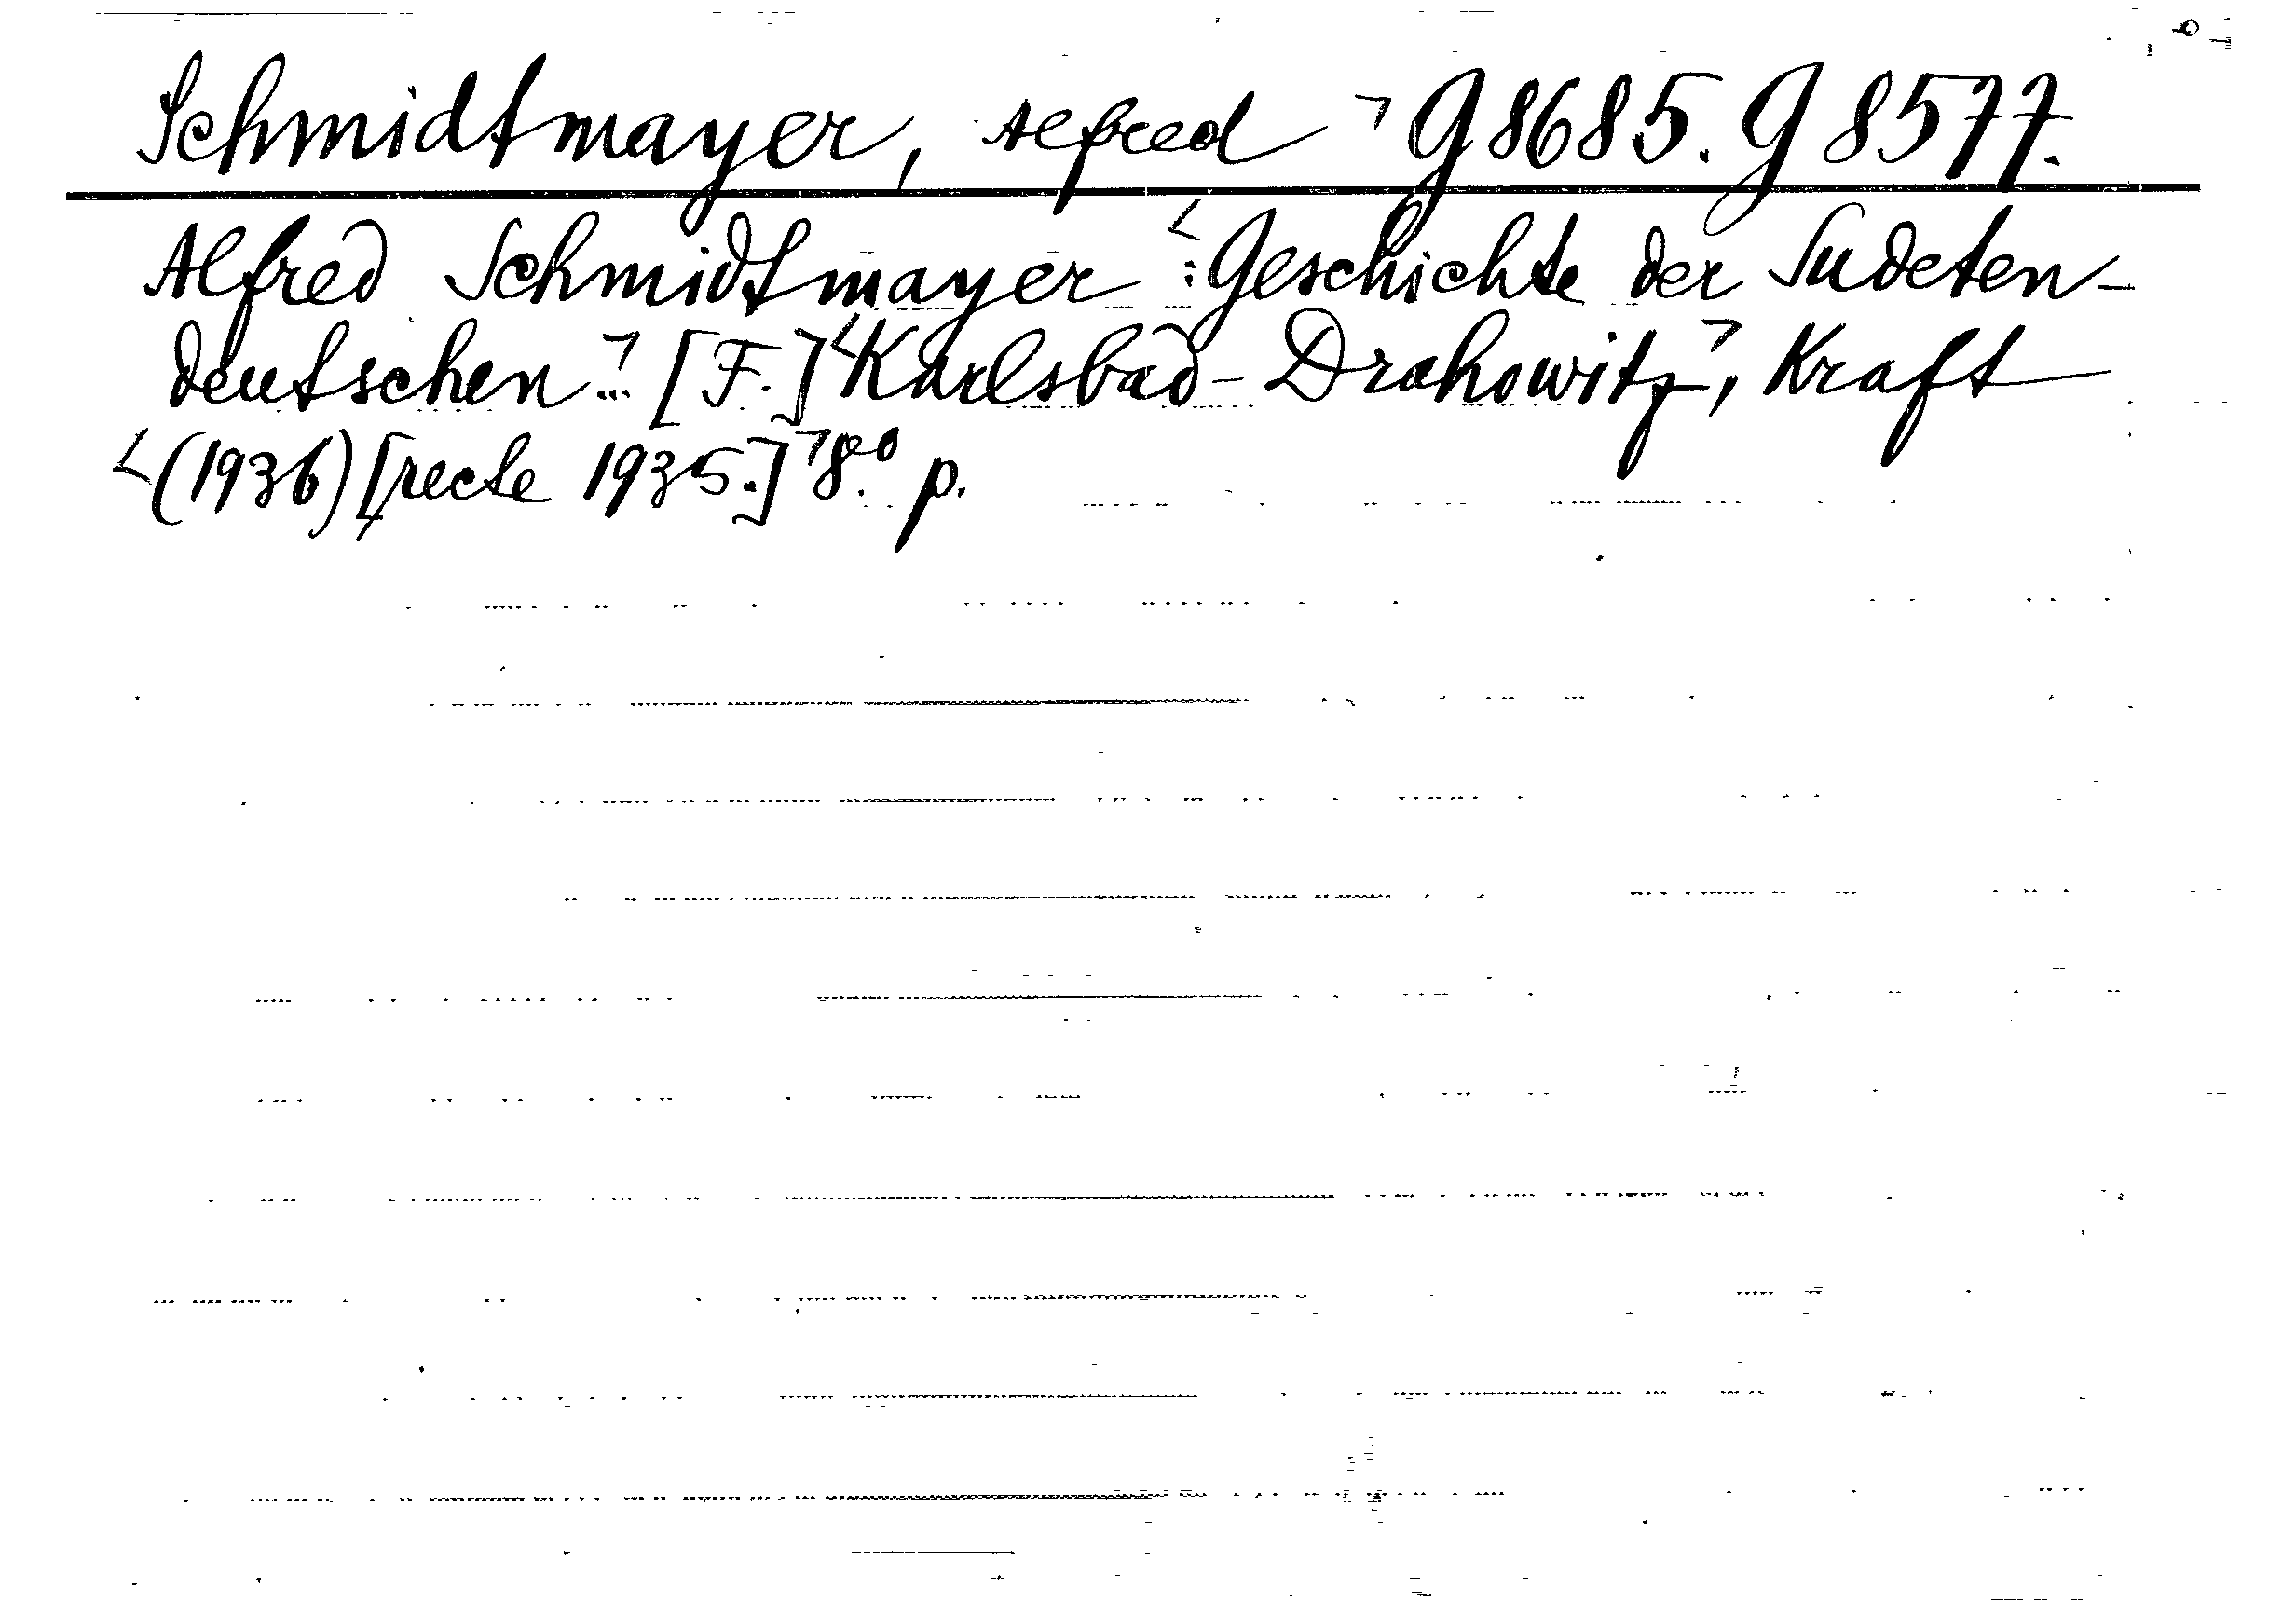 Schmidtmayer, Alfred ⌝ G 8685. G 8577.
Alfred Schmidtmayer <: Geschichte der Sudeten-
deutschen ⌝... [F.] <Karlsbad - Drahowitz ⌝, Kraft
<(1936) [recte 1935.] ⌝ 8.° p.